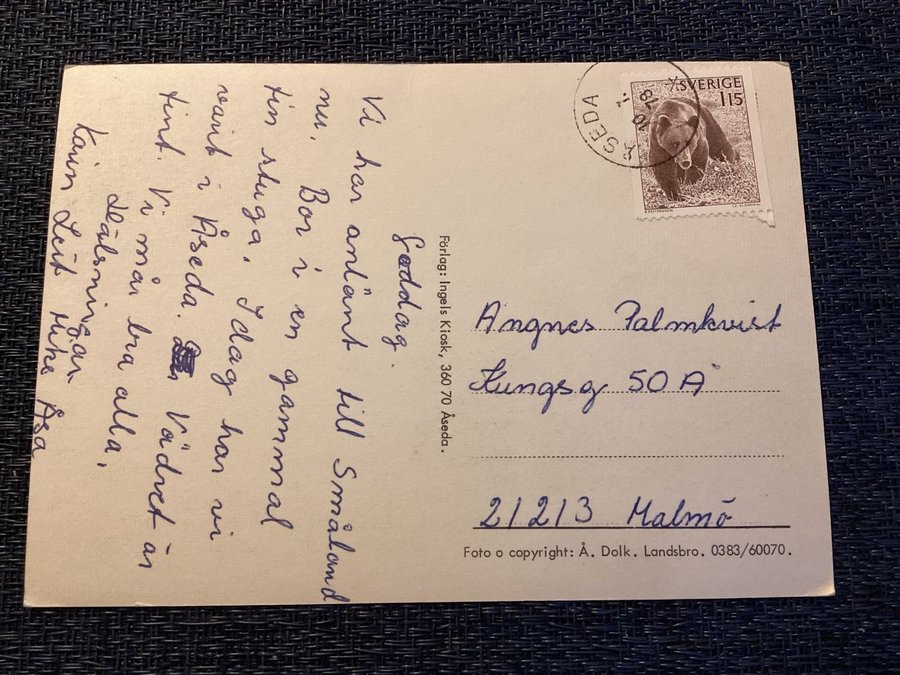 Goddag.
Vi har anlänt till Småland
nu. Bor i en gammal
fin stuga. Idag har vi
varit i Åseda. Vädret är
fint. Vi mår bra alla.
Hälsningar
Karin Leif Mike Åsa
Förlag: Ingels Kiosk, 360 70 Åseda.
SVERIGE
115
ÅSEDA
10
78
Angnes Palmkvist
Kungsg 50 A
21213 Malmö
Foto o copyright: Å. Dolk. Landsbro. 0383/60070.